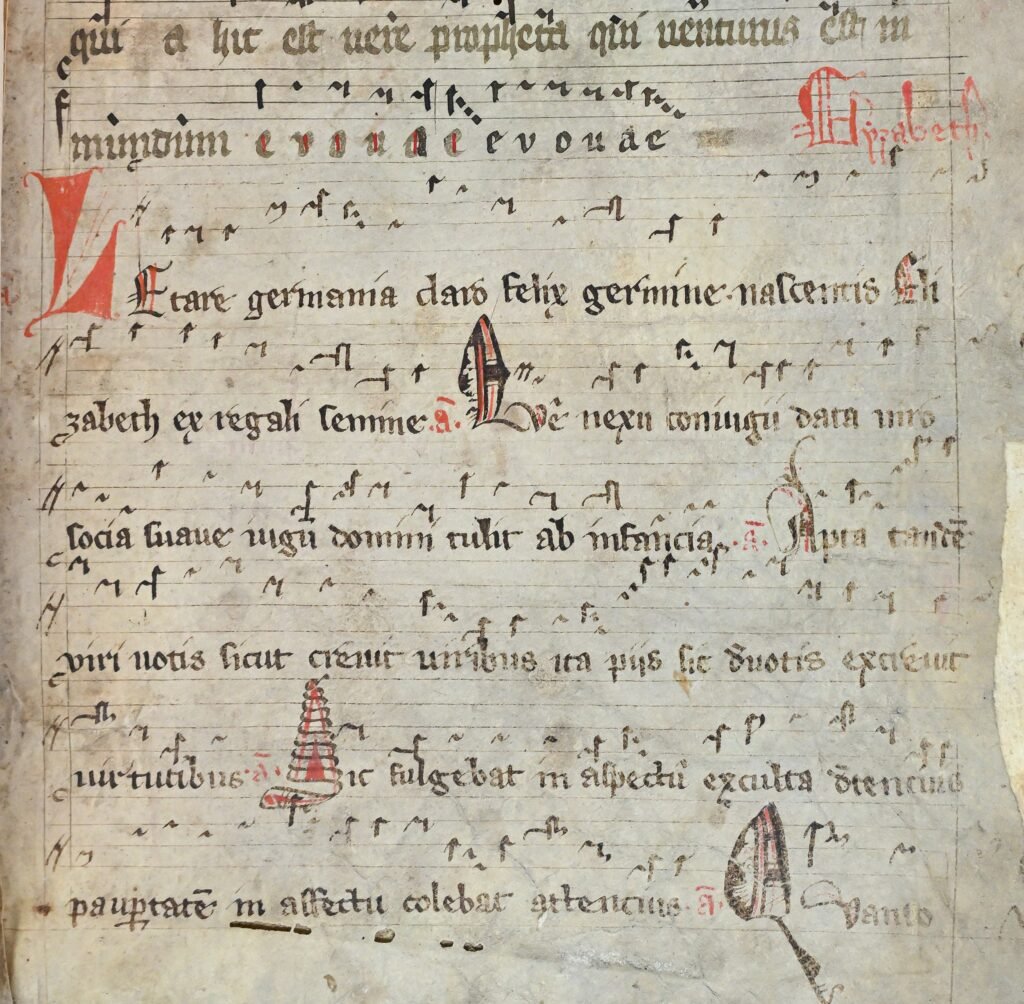 qui a hic est vere propheta qui uenturus est in
mundum e v o u a e e v o u a e Elyzabeth
LEtare germania claro felix germine nascentis Eli
zabeth ex regali semine. ā. Que nexu coniugii data uiro
sociā suaue iugū domini tulit ab infancia. ā. Apta tandē
viri uotis sicut creuit uiribus ita piis sic dūotis excreuit
uirtutibus. ā. hic fulgebat in aspectu exculta
paup̱tatē in affectu colebat attencius. ā. Quanto